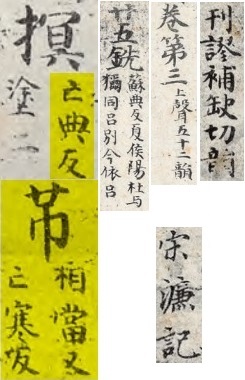 刊謬補缺切韻
卷第三上聲五十二韻
廿五銑
蘇典反夏侯陽杜与
獨同呂別今依呂
㨠
亡典反
塗二
芇
相當又
亡寒反
宋濂記